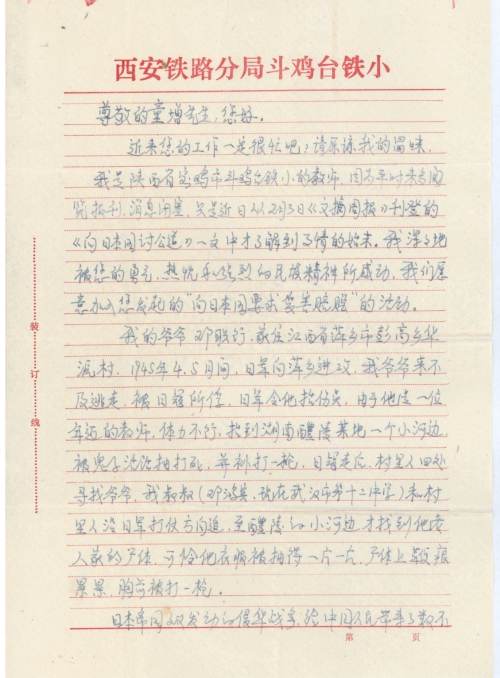 西安铁路分局斗鸡台铁小
尊敬的童增先生，您好。
近来您的工作一定很忙吧？请原谅我的冒昧。
我是陕西省宝鸡市斗鸡台铁小的教师，因不平时来
报刊，消息闭塞，只是近日从2月3日《文摘周报》刊登的
《向日本国讨公道》一文中才了解到事情的始末。我深深地
被您的勇气，热忱和强烈的民族精神所感动，我们愿
意加入您发起的“向日本国要求受害赔赔”的活动。
我的爷爷 邓 家住江西省萍乡市彭高乡华
泥村，1945年4.5月间，日军向萍乡进攻，我爷爷来不
及逃走，被日寇所俘，日军令他抬伤兵，由于他是一位
年迈的教师，体力不行，抬到湖南醴陵某地一个小河边，
被鬼子活活抽打死，并刺打一枪，日寇走后，村里人四处
寻找爷爷，我叔叔（邓鸿，现在武汉市第十二中学）和村
里人沿日军打仗方向追，至醴陵的小河边才找到他老
人家的尸体，可怜他衣服被抽得一片一片，尸体上鞭痕
累累，胸前被打一枪。
日本帝国主义发动的侵华战争，给中国人民带来了数不
装
订
线
第 页